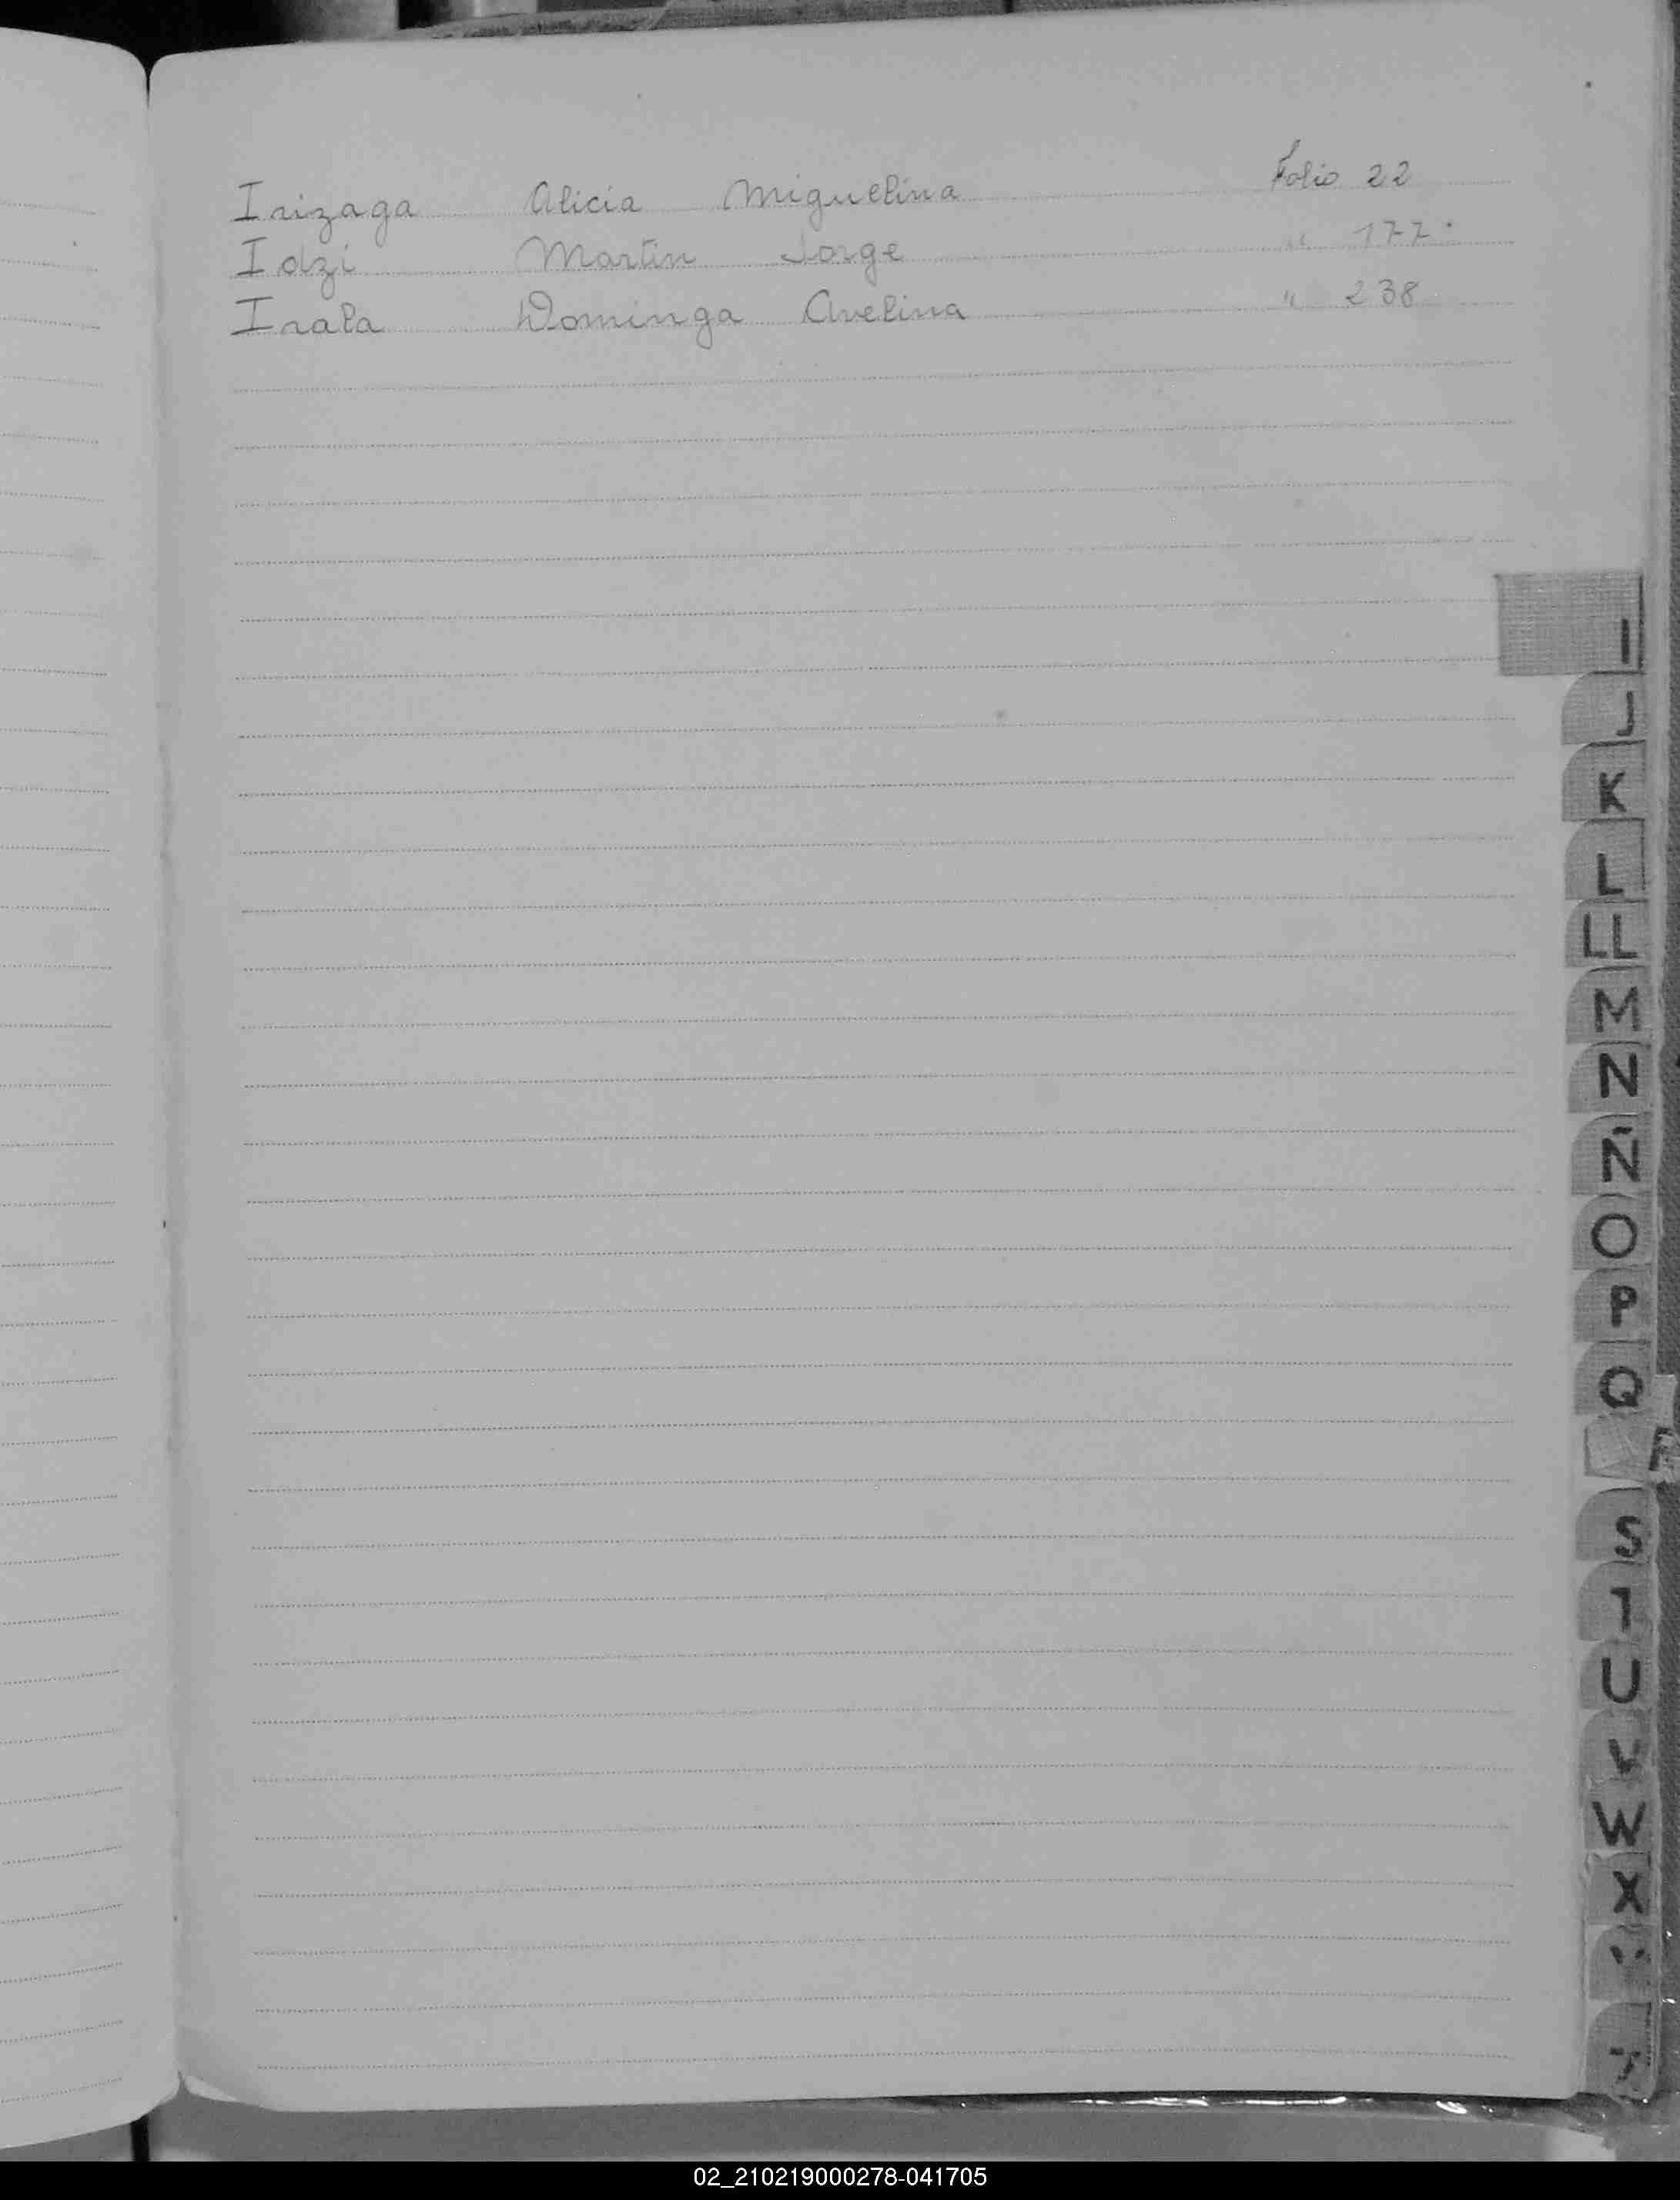 Irizaga Alicia Miguelina Folio 22
Idzi Martin Jorge " 177.
Irala Dominga Avelina " 238
I
J
K
L
LL
M
N
Ñ
O
P
Q
R
S
T
U
V
W
X
02_210219000278-041705